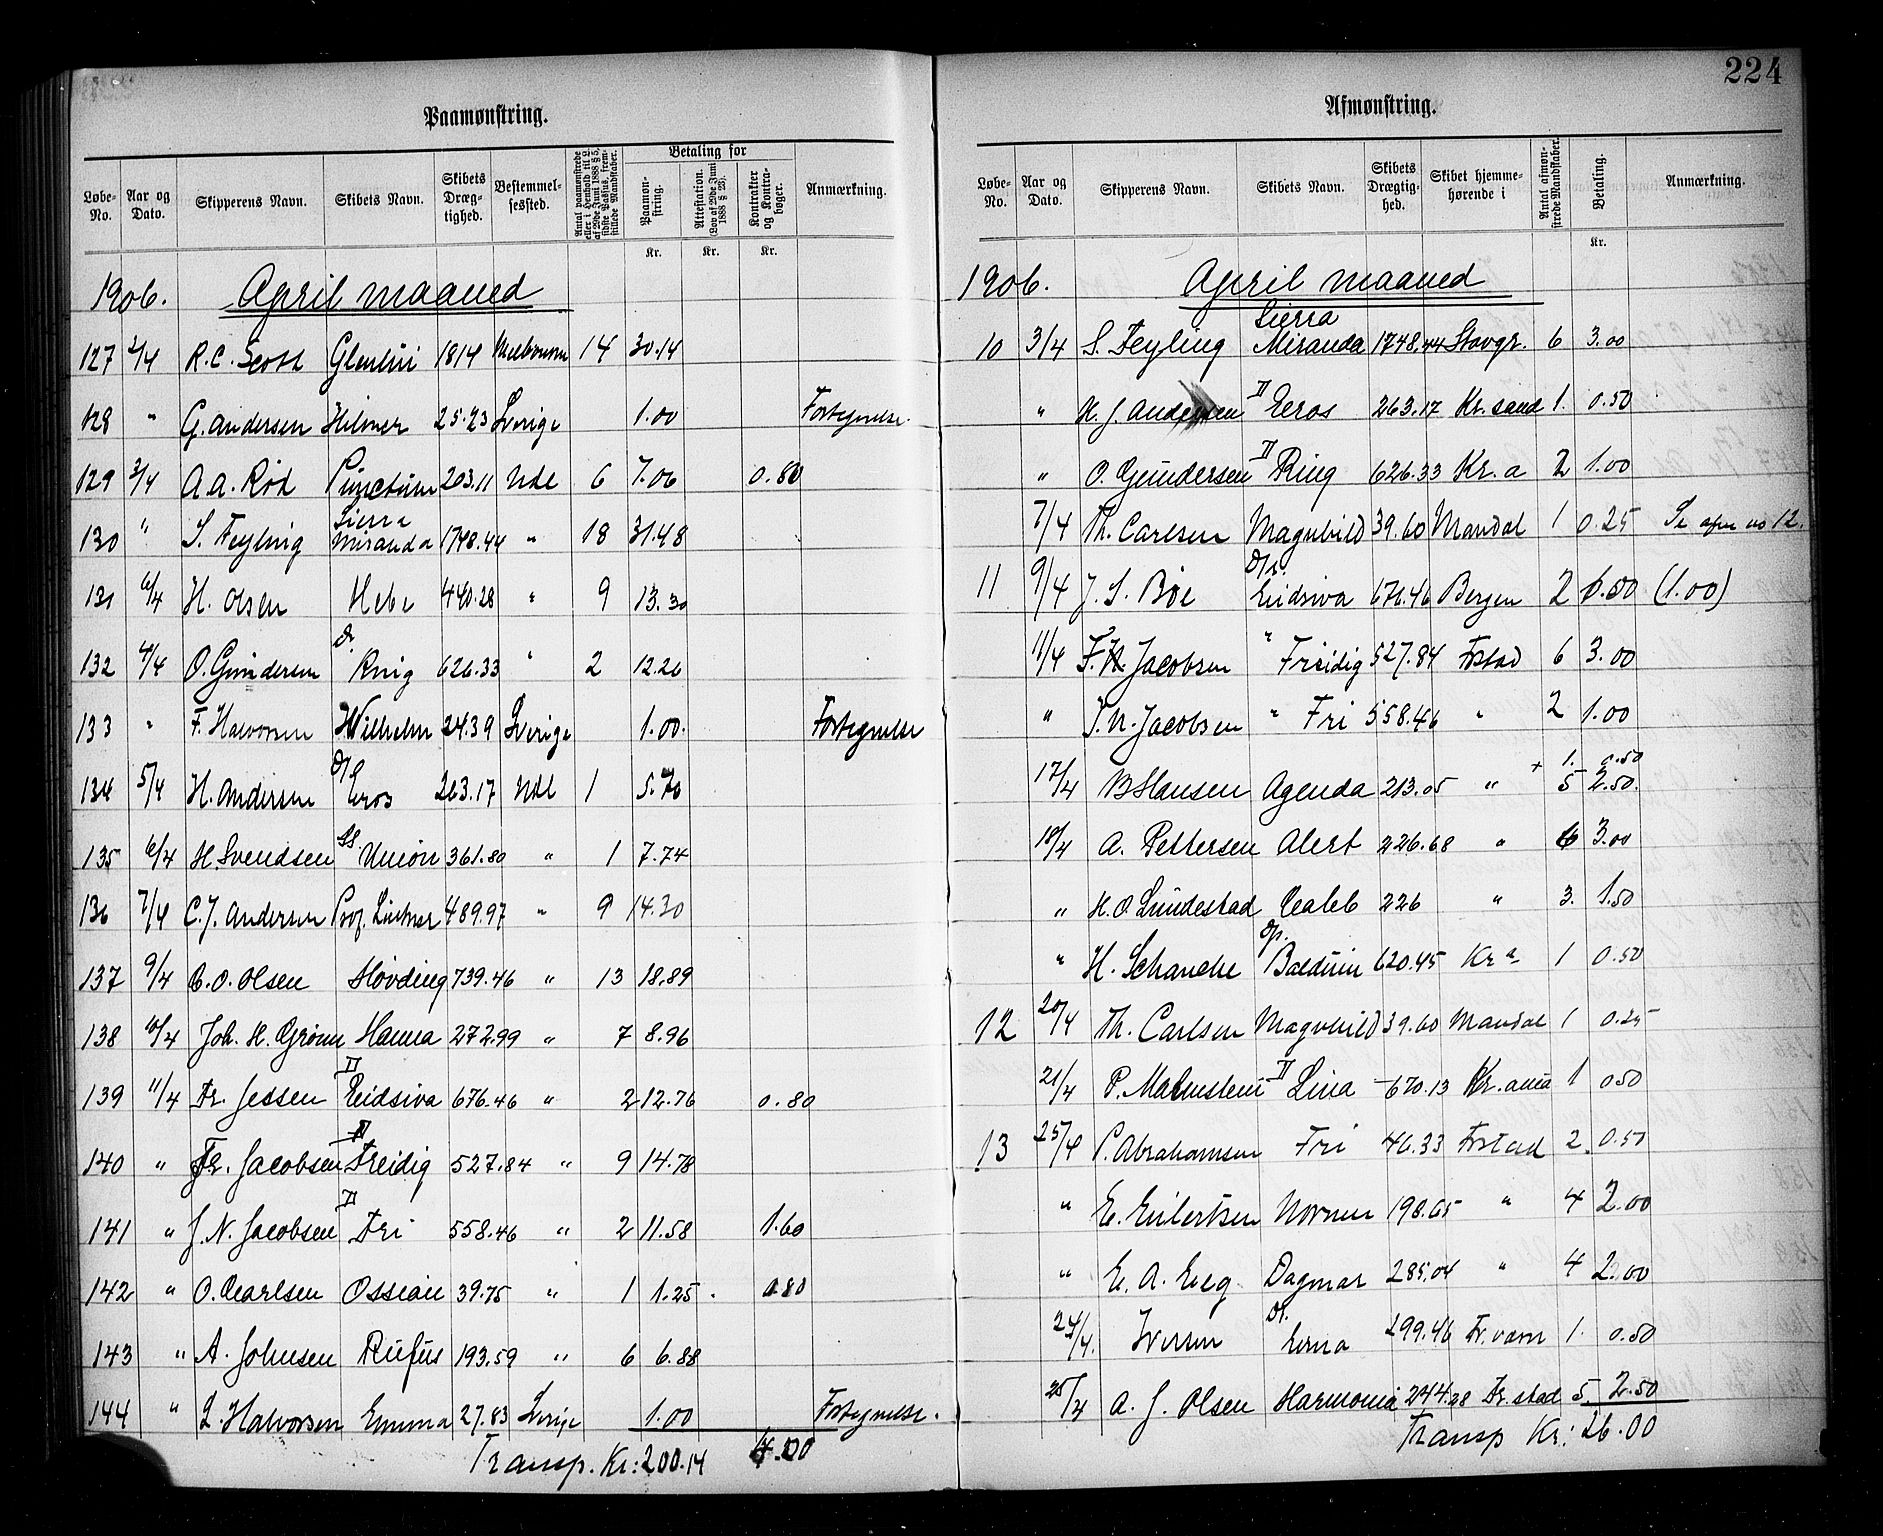 224
Paamønstring.
Løbe-No. Aar og Dato. Skipperens Navn. Skibets Navn. Skibets Dræg-tighed. Bestemmel-sessted. Antal paamønstrede eller i Henhold til L. af 29de Juni 1888 § 5, sidste Passus, frem-stillede Mandskaber. Betaling for Paamøn-string. Attestation. (Lov af 29de Juni 1888 § 23). Kontrakter og Kontra-bøger. Anmærkning.
Kr. Kr. Kr.
1906. April maaned
127 2/4 R. C. Scott 1814 Melbourne 14 30.14
128 " G. Andersen Hilmer 25.23 Sverige 1.00 Fortegnelse.
129 3/4 A. A. Rød Punctum 203.11 Udl 6 7.06 0.80
130 " S. Feyling Sierra Miranda 1748.44 " 18 31.48
131 4/4 H. Olsen Hebe 440.28 " 9 13.30
132 4/4 O. Gundersen D. Ring 626.33 " 2 12.26
133 " F. Halvorsen Wilhelm 24.39 Sverige 1.00. Fortegnelse
134 5/4 H. Andersen D/S Eros 263.17 Udl 1 5.70
135 6/4 H. Svendsen SS Union 361.80 " 1 7.74
136 7/4 C. J. Andersen Prof. Lintner 489.97 " 9 14.30
137 9/4 C. O. Olsen Høvding 739.46 " 13 18.89
138 10/4 Joh. H. Grønn Hanna 272.99 " 7 8.96
139 11/4 Fr. Jessen D Eidsiva 676.46 " 2 12.76 0.80
140 " Fr. Jacobsen D Freidig 527.84 " 9 14.78
141 " J. N. Jacobsen D Fri 558.46 " 2 11.58 1.60
142 " O. Carlsen Ossian 39.75 " 1 1.25. 0.80
143 " A. Johnsen Rufus 193.59 " 6 6.88
144 " L. Halvorsen Emma 27.83 Sverige 1.00 Fortegnelse.
Transp. Kr: 200.14 4.00
Afmønstring.
Løbe-No. Aar og Dato. Skipperens Navn. Skibets Navn. Skibets Drægtig-hed. Skibet hjemme-hørende i Antal afmøn-strede Mandskaber. Betaling. Anmærkning.
Kr.
1906. April maaned
10 3/4 S. Feyling Sierra Miranda 1748.44 Stavgr. 6 3.00
" H. J. Andersen D Eros 263.17 Kr. sand 1. 0.50
" O. Gundersen D Ring 626.33 Kr. a 2 1.00
7/4 Th. Carlsen Magnhild 39.60 Mandal 1 0.25 Se no 12.
11 9/4 J. S. Bøe D/S. Eidsiva 676.46 Bergen 2 (1.00)
11/4 F. N. Jacobsen " Freidig 527.84 Frstad 6 3.00
" J. N. Jacobsen " Fri 558.46 " 2 1.00
+ 1. 0.50
17/4 B Hansen Agenda 213.05 " 5 2.50.
18/4 A. Pettersen Alert 226.68 " 6 3.00
" H. O. Lundestad Caleb 226 " 3. 1.50
" H. Schanche Balduin 620.45 Kr a 1 0.50
12 20/4 Th. Carlsen Magnhild 39.60 Mandal 1 0.25
21/4 P. Malmstein D Lina 670.13 Kr. ania 1 0.50
13 25/4 P. Abrahamsen Fri 46.33 Frstad 2. 0.50
" E. Eilertsen Nornen 198.65 " 4 2.00
" E. A. Eeg Dagmar 285.04 " 4 2.00
24/4. Iversen D. Erna 299.46 Fr. værn 1. 0.50
25/4 A. J. Olsen Harmonia 244.28 Fr. stad 5 2.50
Transp Kr: 26.00